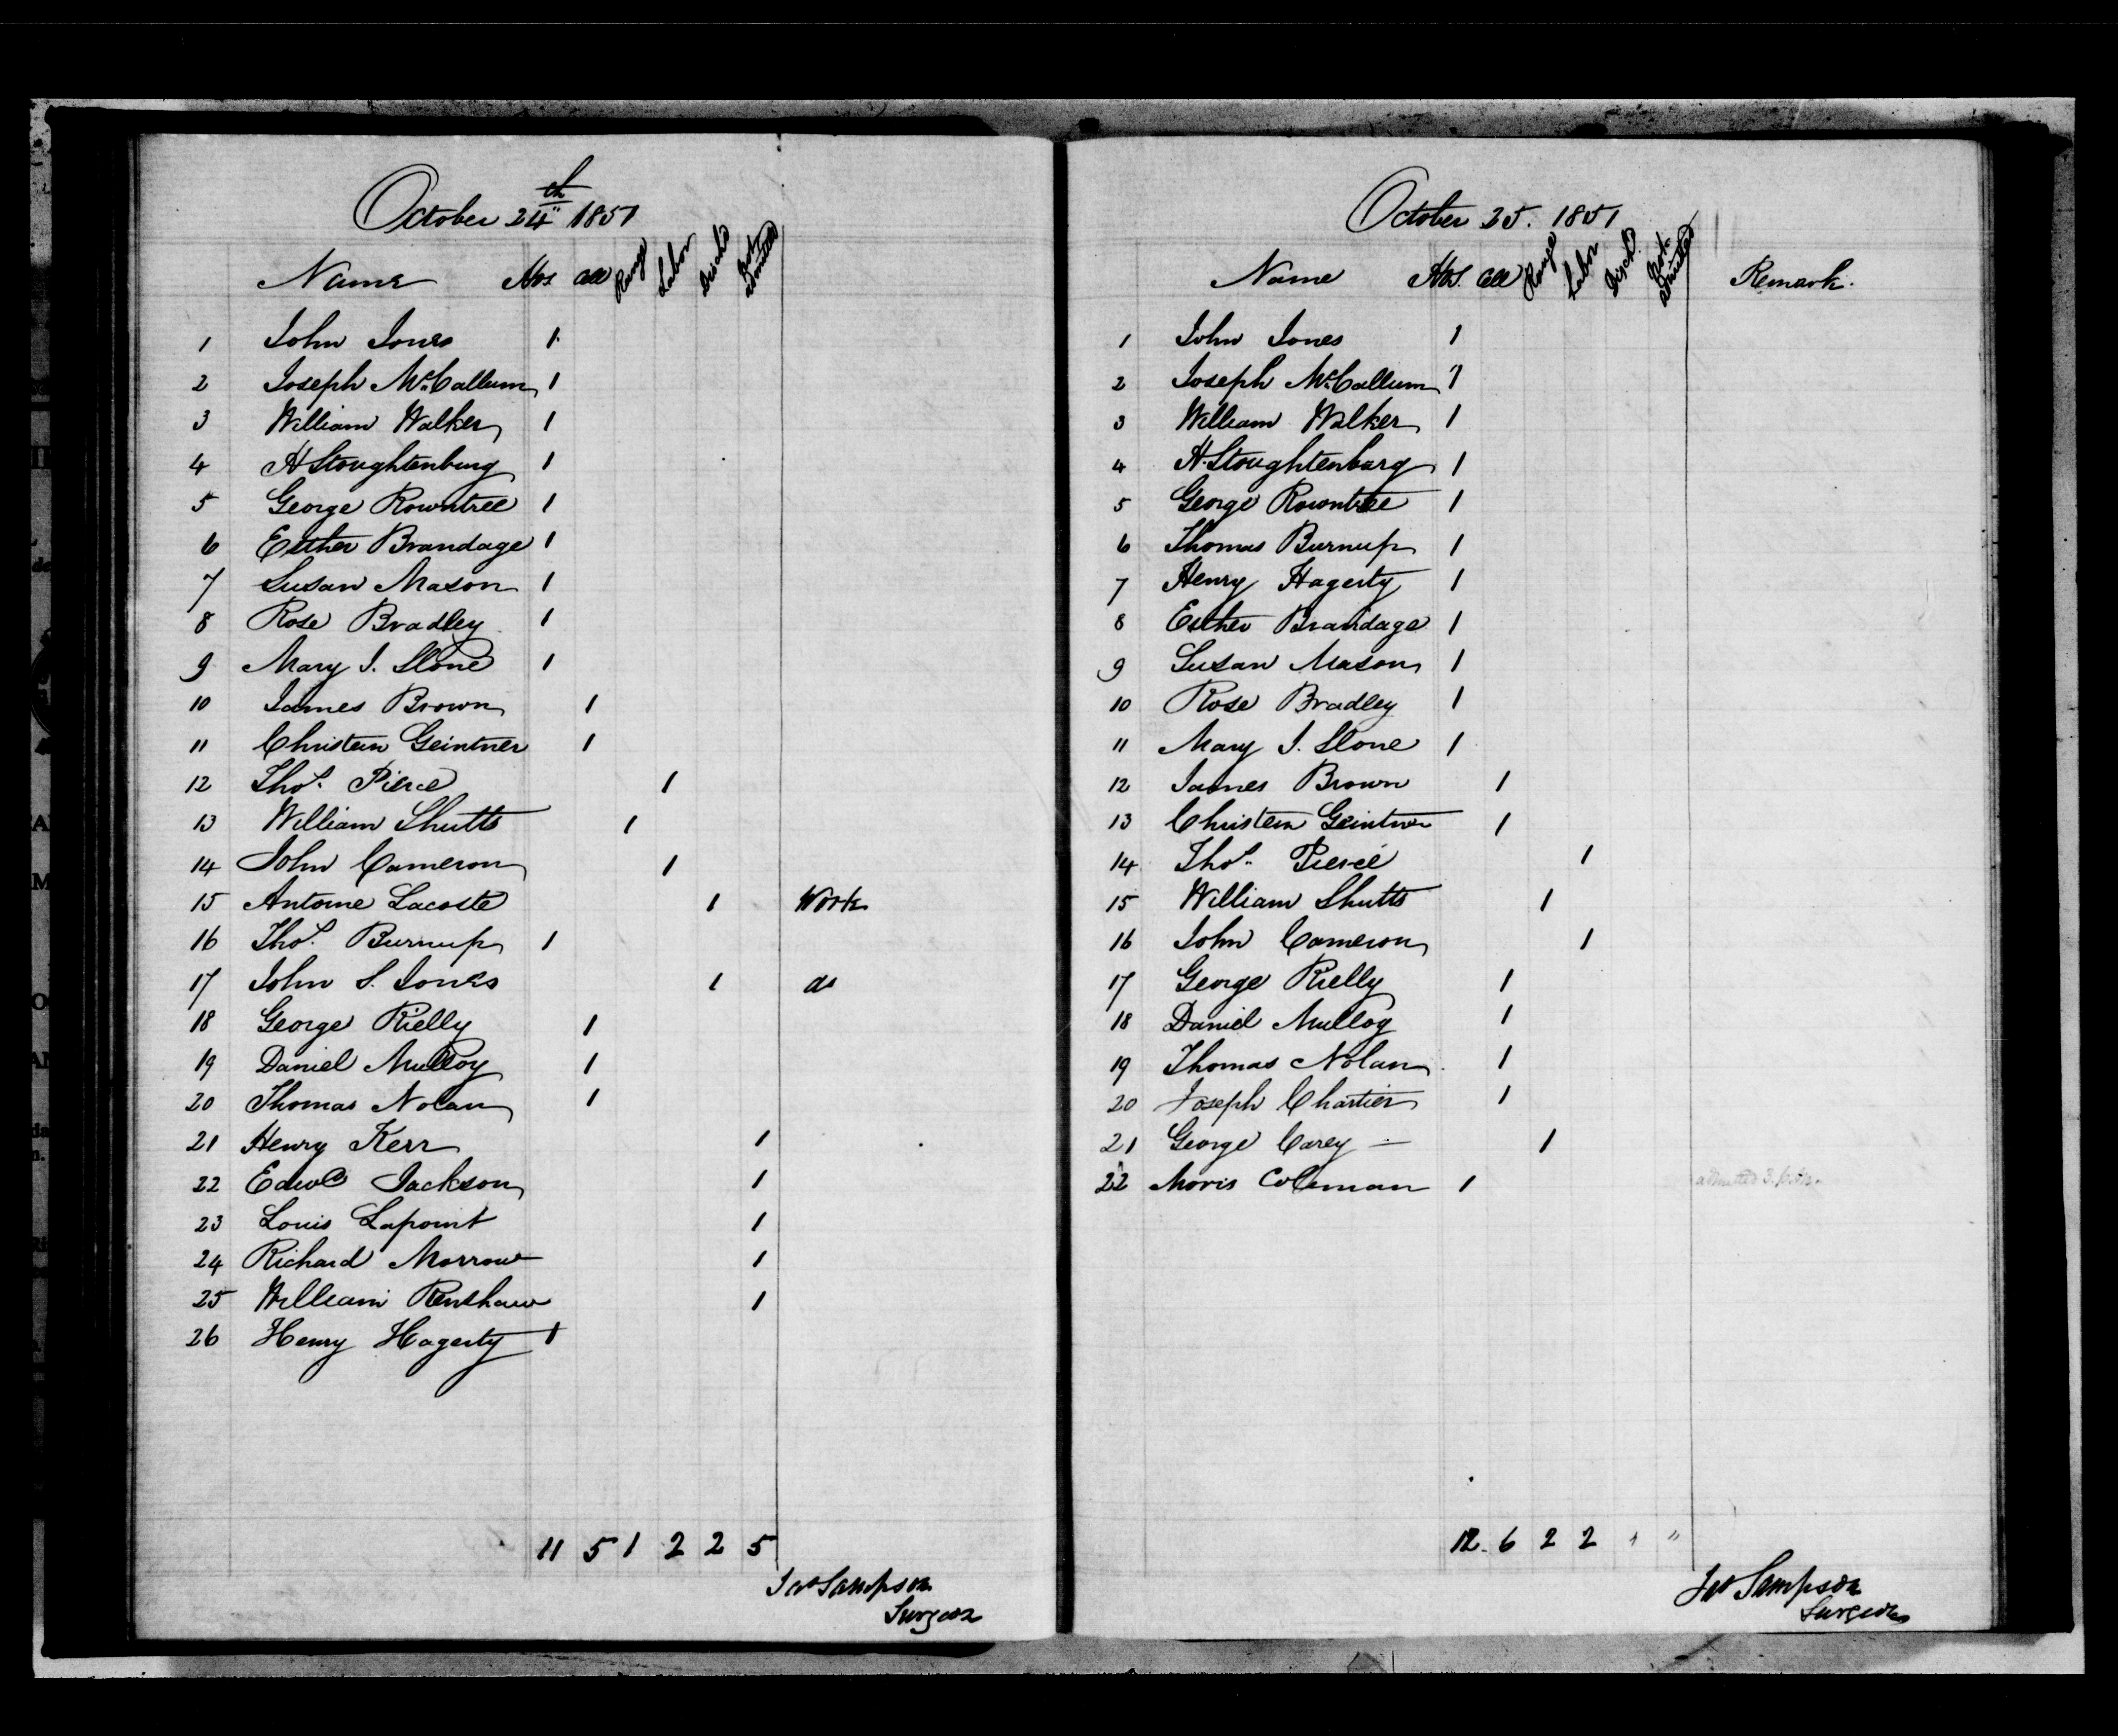 October 24th 1851
Name Hos Cell Range Labor Disch'd Not Admitted
1 John Jones 1
2 Joseph McCallum 1
3 William Walker 1
4 H Stoughtenburg 1
5 George Rowntree 1
6 Esther Brandage 1
7 Susan Mason 1
8 Rose Bradley 1
9 Mary J. Slone 1
10 James Brown 1
11 Christein Geintner 1
12 Thos. Pierce 1
13 William Shutts 1
14 John Cameron 1
15 Antoine Lacoste 1 Work
16 Thos. Burnup 1
17 John S. Jones 1 do
18 George Rielly 1
19 Daniel Mulloy 1
20 Thomas Nolan 1
21 Henry Kerr 1
22 Edwd Jackson 1
23 Louis Lapoint 1
24 Richard Morrow 1
25 William Renshaw 1
26 Henry Hagerty 1
11 5 1 2 2 5
Jas Sampson
Surgeon
October 25. 1851
Name Hos. Cell Range Labor Disch'd. Not Admitted Remark.
1 John Jones 1
2 Joseph McCallum 1
3 William Walker 1
4 H. Stoughtenburg 1
5 George Rowntree 1
6 Thomas Burnup 1
7 Henry Hagerty 1
8 Esther Brandage 1
9 Susan Mason 1
10 Rose Bradley 1
11 Mary J. Slone 1
12 James Brown 1
13 Christein Geintner 1
14 Thos. Pierce 1
15 William Shutts 1
16 John Cameron 1
17 George Rielly 1
18 Daniel Mulloy 1
19 Thomas Nolan 1
20 Joseph Chartier 1
21 George Carey — 1
22 Moris Coleman 1 admitted 3.
12. 6 2 2 " "
Jas Sampson
Surgeon